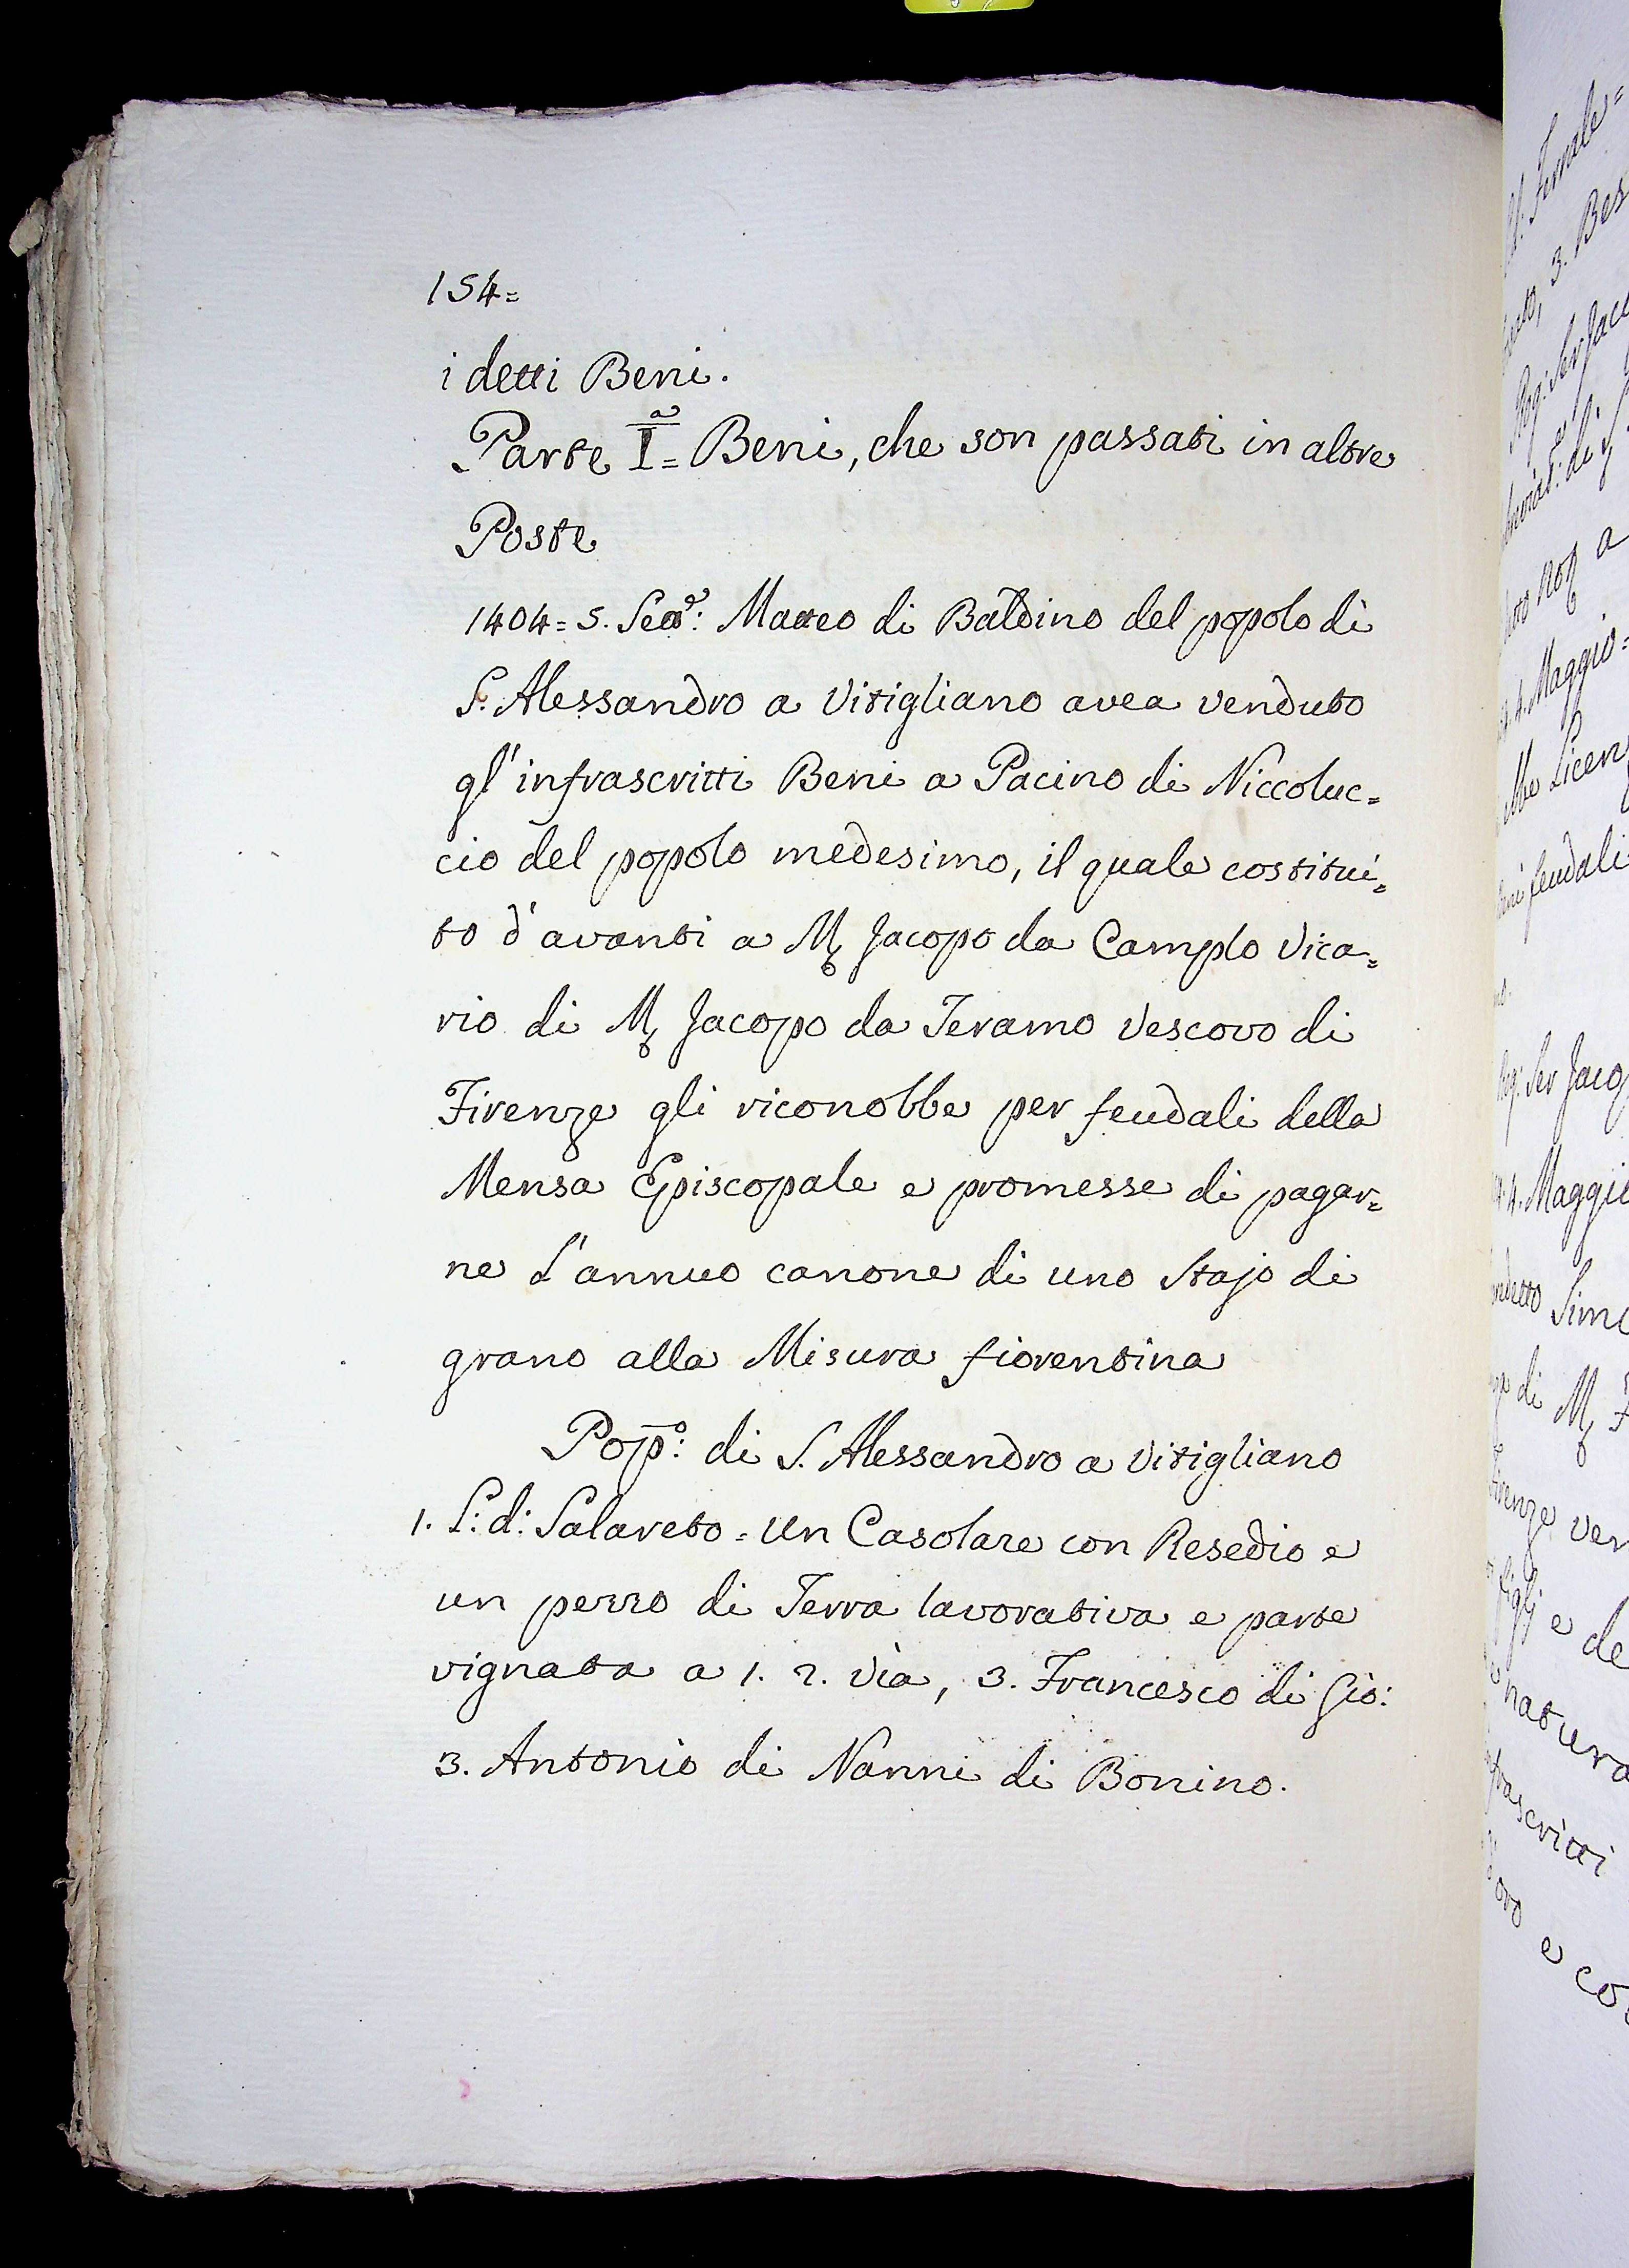 154=
i detti Beni.
Parte I.ª= Beni, che son passati in altre
Poste
1404= 5. Matteo di Baldino del popolo di
S. Alessandro a Vitigliano avea venduto
gl'infrascritti Beni a Pacino di Niccoluc=
cio del popolo medesimo, il quale costitui=
to d'avanti a M. Jacopo da Camplo Vica=
rio di M. Jacopo da Teramo Vescovo di
Firenze gli riconobbe per feudali della
Mensa Episcopale e promesse di pagar=
ne l'annuo canone di uno Stajo di
grano alla Misura fiorentina
Pop.º: di S. Alessandro a Vitigliano
1. L: d: Salareto= Un Casolare con Resedio e
un pezzo di Terra lavorativa e parte
vignata a 1. 2. Via, 3. Francesco di Gio:
3. Antonio di Nanni di Bonino.
3. Bes
Maggio=
Licen
feudali
Ser Jaco
4. Maggio
Sim
di M.
Firenze ven
figlj e de
natura
e co